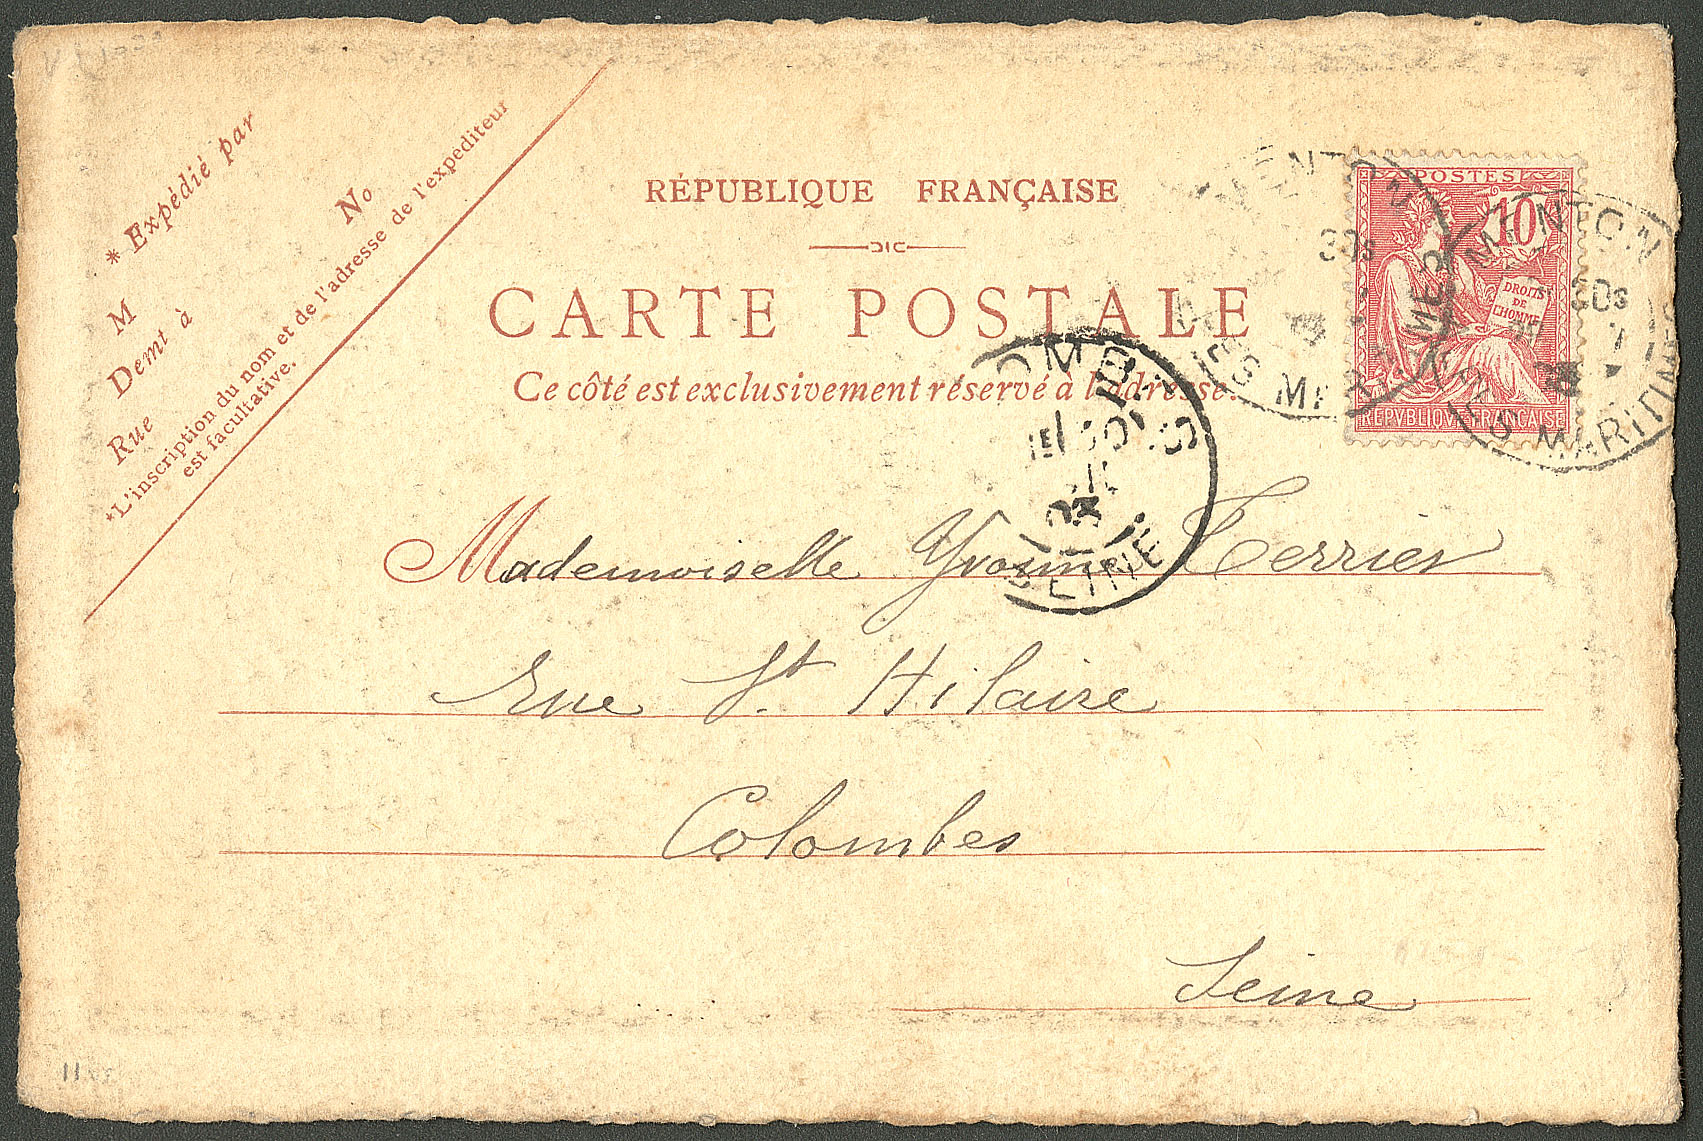 * Expédié par
M
Demt à
Rue No
*L'inscription du nom et de l'adresse de l'expediteur
est facultative.
RÉPUBLIQUE FRANÇAISE
CARTE POSTALE
Ce côté est exclusivement réservé à l'adresse.
POSTES
10
DROITS
DE
L'HOMME
REPVBLIQVE FRANÇAISE
MENTON
30s
MENTON
30s
ES MARITIMES
SEINE
Mademoiselle Yvonne Terrier
Rue St. Hilaire
Colombes
Seine
11